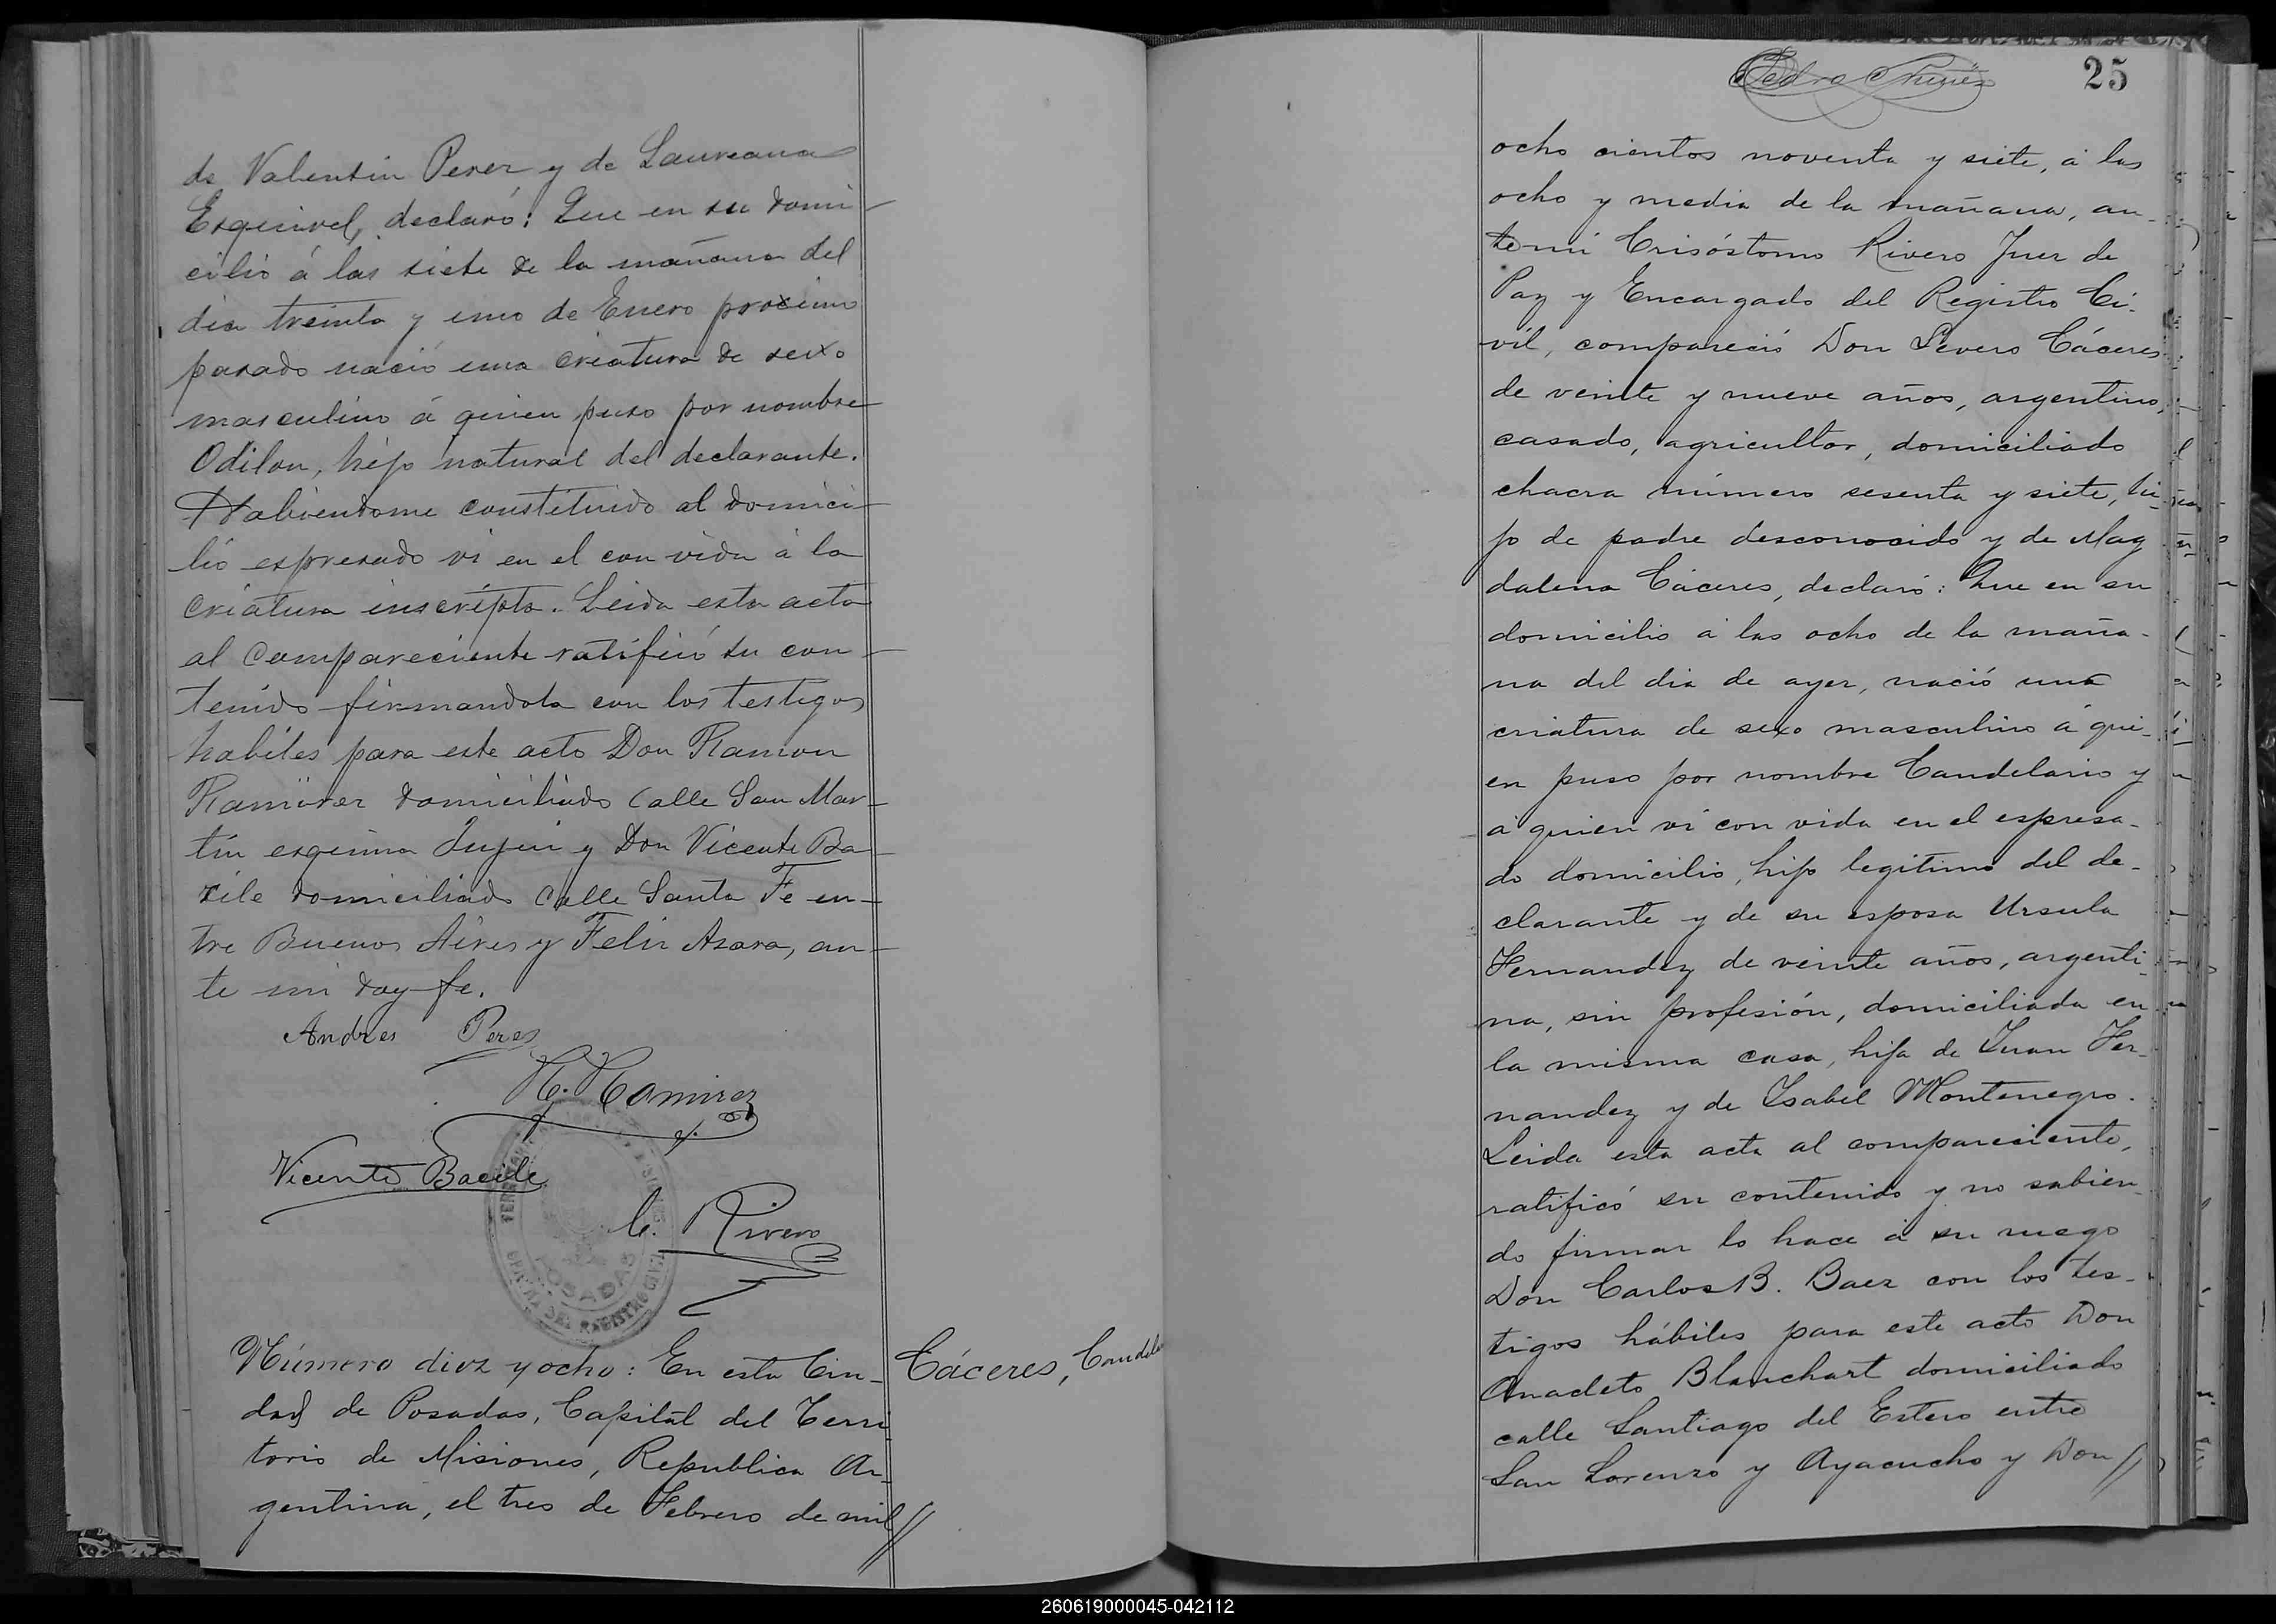 de Valentin Perez y de Laureana
Esquivel, declaró: Que en su domi-
cilio á las siete de la mañana del
dia treinta y uno de Enero proximo
pasado nació una criatura de sexo
masculino á quien puso por nombre
Odilon, hijo natural del declarante.
Habiendome constituido al domici-
lio espresado vi en el con vida á la
criatura inscripta. Leida esta acta
al compareciente ratificó su con-
tenido firmandola con los testigos
habiles para este acto Don Ramon
Ramirez domiciliado calle San Mar-
tin esquina Jujui y Don Vicente Ba-
sile domiciliado calle Santa Fe en-
tre Buenos Aires y Felix Azara, an-
te mi doy fe.
Andres Perez
R. Ramirez
Vicente Bacile
C. Rivero
POSADAS
OFICINA DEL REGISTRO CIVIL
Número diez y ocho: En esta Ciu-
dad de Posadas, Capital del Terri
torio de Misiones, Republica Ar-
gentina, el tres de Febrero de mil//
Cáceres, Candela
Pedro Nuñez
25
ocho cientos noventa y siete, á las
ocho y media de la mañana, an-
te mi Crisóstomo Rivero Juez de
Paz y Encargado del Registro Ci-
vil, compareció Don Severo Cáceres
de veinte y nueve años, argentino,
casado, agricultor, domiciliado
chacra número sesenta y siete, hi-
jo de padre desconocido y de Mag
dalena Cáceres, declaró: Que en su
domicilio á las ocho de la maña-
na del dia de ayer, nació una
criatura de sexo masculino á qui-
en puso por nombre Candelario y
á quien vi con vida en el espresa-
do domicilio, hijo legitimo del de-
clarante y de su esposa Ursula
Fernandez de veinte años, argenti-
na, sin profesión, domiciliada en
la misma casa, hija de Juan Fer-
nandez y de Ysabel Montenegro.
Leida esta acta al compareciente,
ratificó su contenido y no sabien-
do firmar lo hace á su ruego
Don Carlos B. Baez con los tes-
tigos hábiles para este acto Don
Anacleto Blanchart domiciliado
calle Santiago del Estero entre
San Lorenzo y Ayacucho y Don//
260619000045-042112